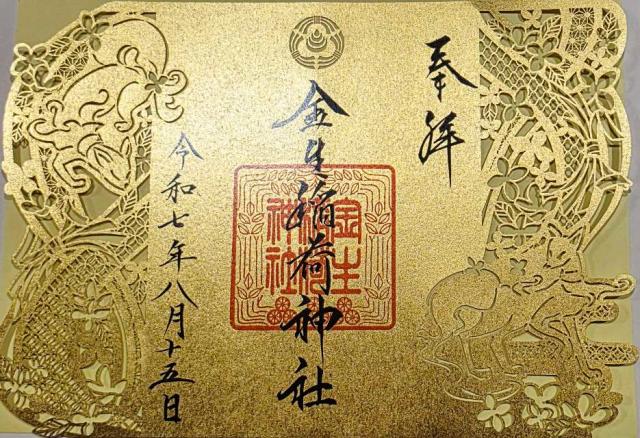 奉拝
金生稲荷神社
金生稲荷神社
令和七年八月十五日